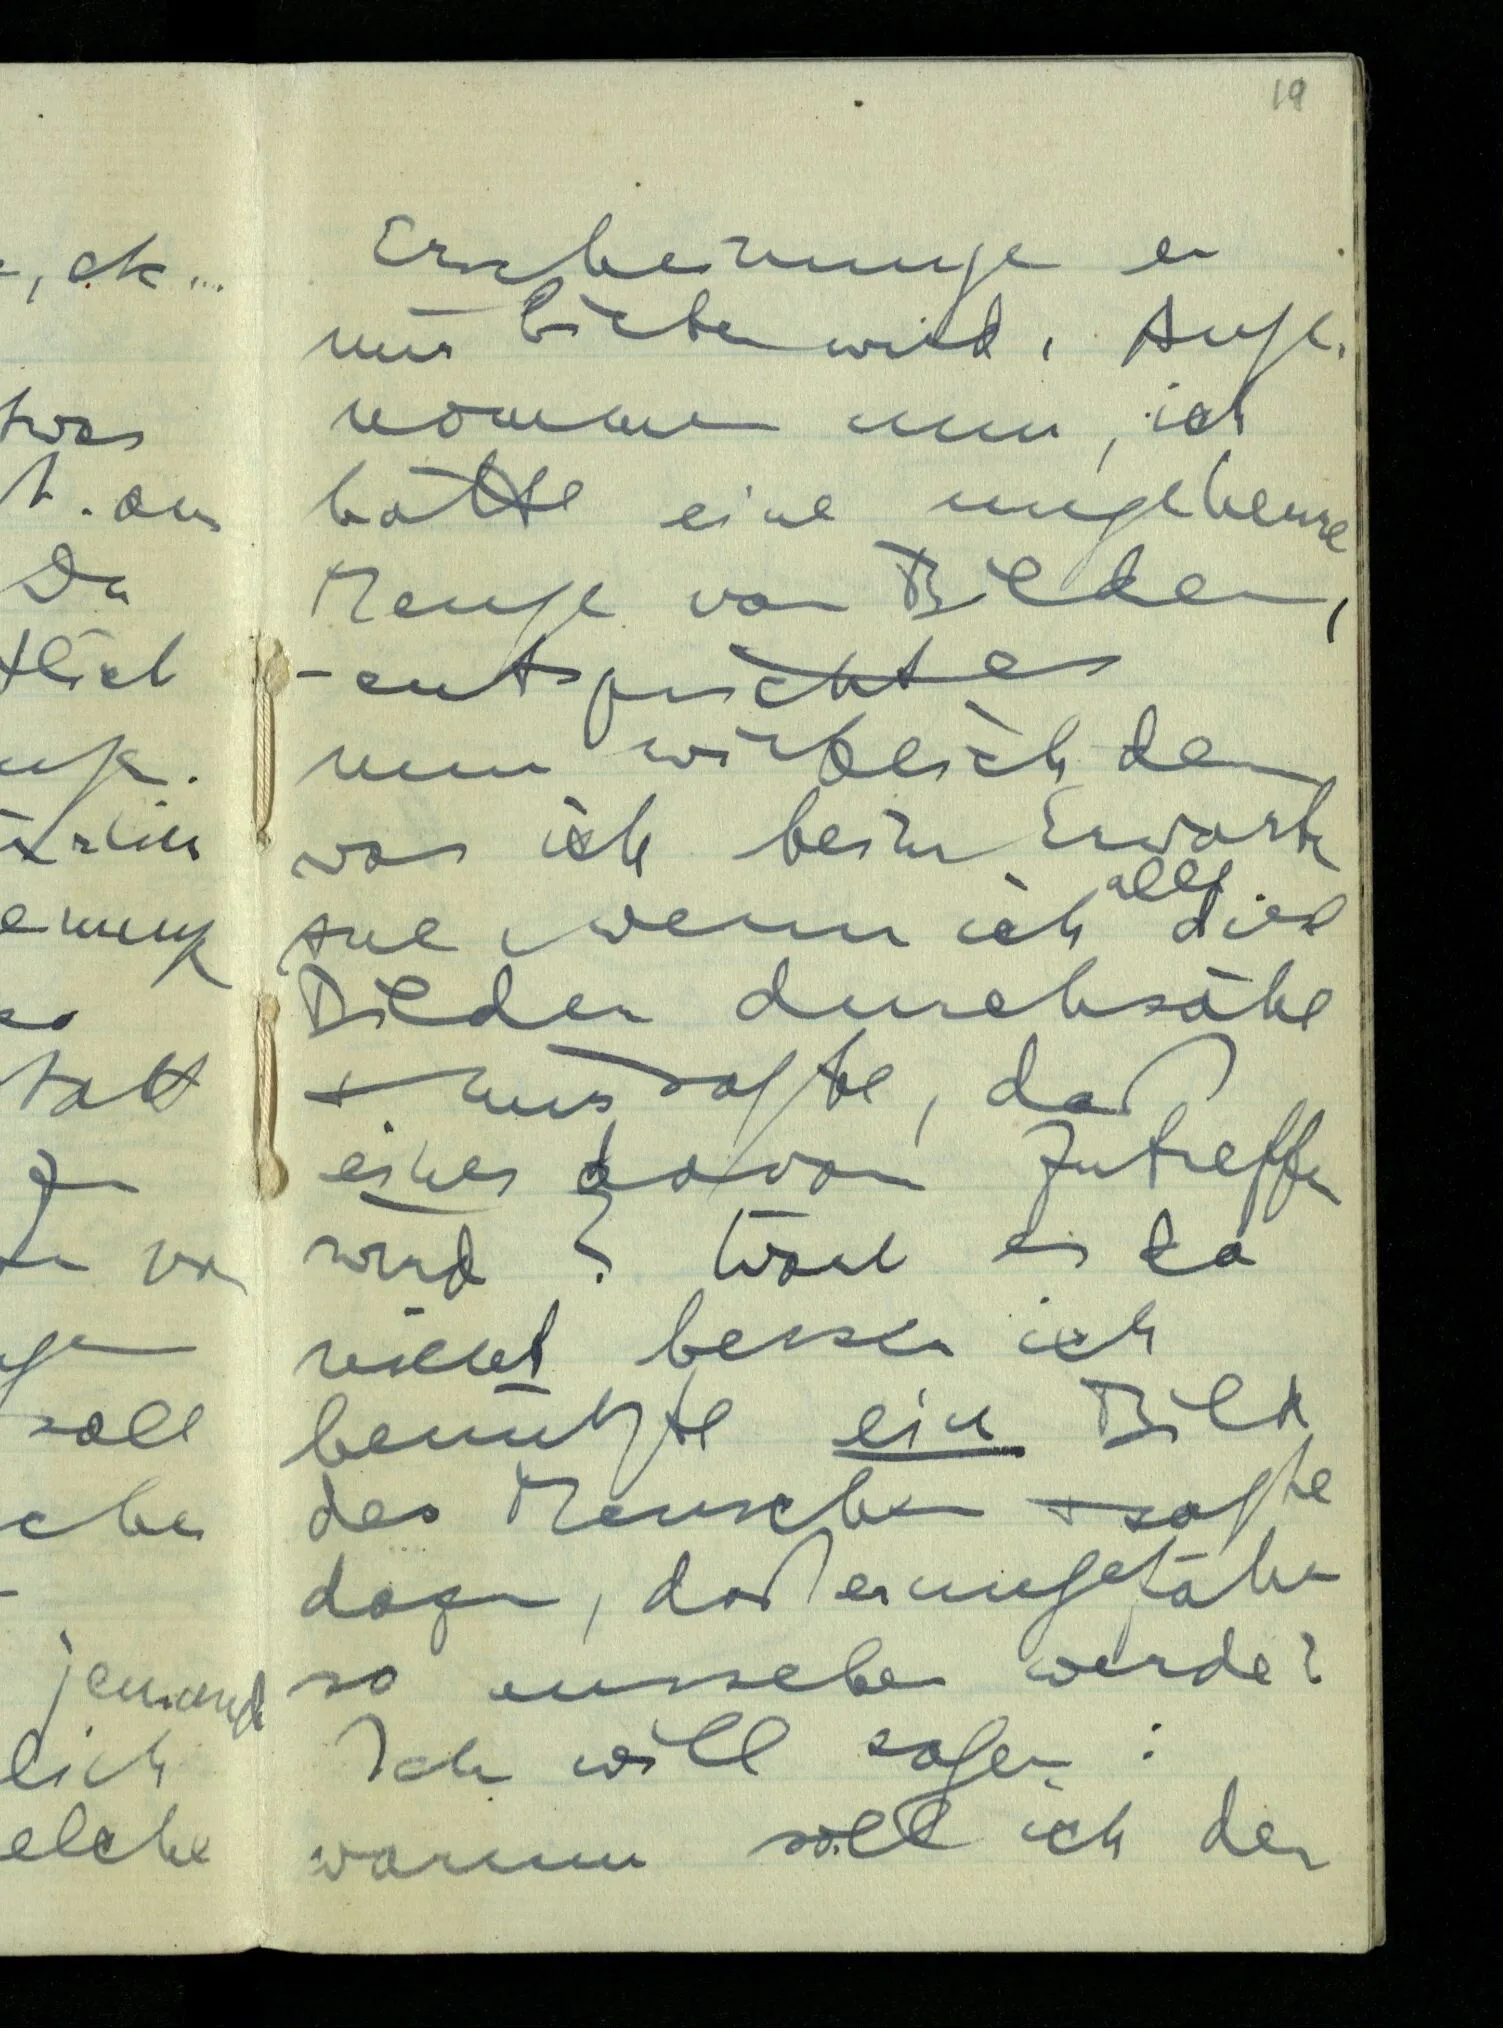 19
Erscheinungen er
mir bieten wird. Ange-
nommen nun, ich
hätte eine ungeheure
Menge von Bildern,
– entspricht es
nun wirklich dem
was ich beim Erwarten
tue wenn ich alle diese
Bilder durchsähe
+ mir sagte, daß
eines davon zutreffen
wird? Wäre es da
nicht besser ich
benützte ein Bild
des Menschen + sagte
dazu, daß er ungefähr
so aussehen werde?
Ich will sagen:
warum soll ich den
, etc...
twas
Da
tlich
so
tatt
zu
von
soll
jemand
lich
elche